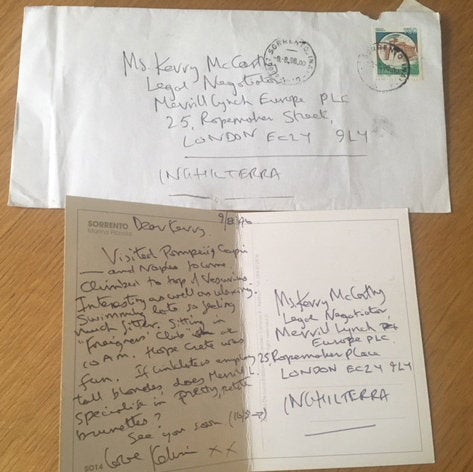 Ms. Kerry McCarthy
Legal Negotiator
Merrill Lynch Europe PLC
25, Ropemaker Street,
LONDON EC2Y 9LY
INGHILTERRA
SORRENTO
Marina Piccola
9/8/96
Dear Kerry,
Visited Pompeii, Capri
— and Naples to come
Climbed to top of Vesuvius
Interesting as well as relaxing.
Swimming lots so feeling
much fitter. Sitting in
"Foreigners' Club" at
10 A.M. Hope Crete was
fun. If Linklaters employ
tall blondes, does Merrill L.
specialise in pretty, petite
brunettes?
See you soon
Love
X X
Ms Kerry McCarthy
Legal Negotiator
Merrill Lynch
Europe PLC
25 Ropemaker Place
LONDON EC2Y 9LY
INGHILTERRA